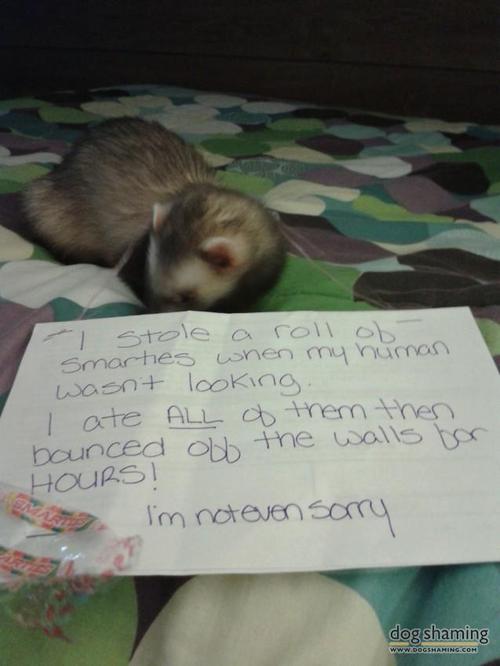 I stole a roll of
smarties when my human
wasn't looking.
I ate ALL of them then
bounced off the walls for
HOURS!
I'm not even sorry
dog shaming
WWW.DOGSHAMING.COM